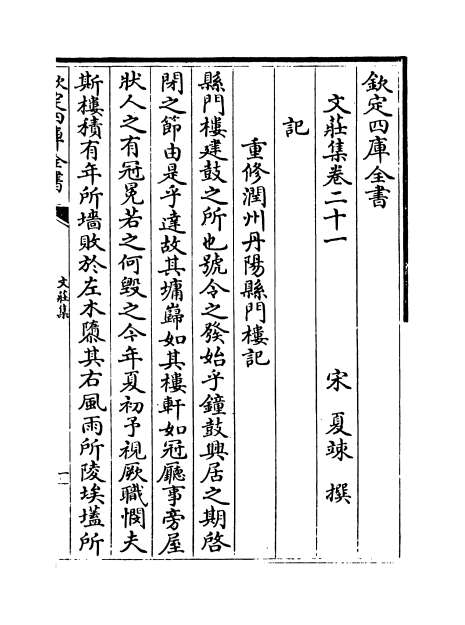 欽定四庫全書
文莊集卷二十一
宋 夏竦 撰
記
重修潤州丹陽縣門樓記
縣門樓建鼓之所也號令之發始乎鐘鼓興居之期啓
閉之節由是乎達故其墉巋如其樓軒如冠廳事旁屋
狀人之有冠冕若之何毀之今年夏初予視厥職憫夫
斯樓積有年所墻敗於左木隳其右風雨所陵埃壒所
欽定四庫全書
文莊集
一